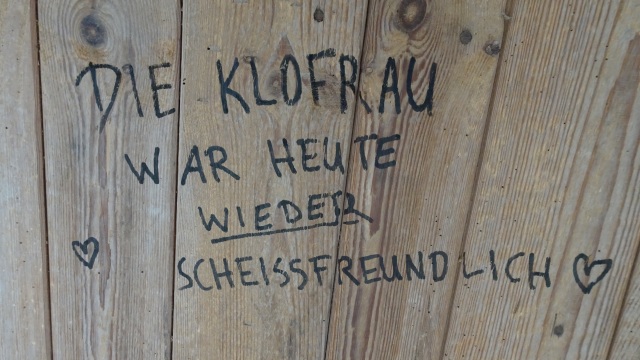 DIE KLOFRAU
WAR HEUTE
WIEDER
SCHEISSFREUNDLICH